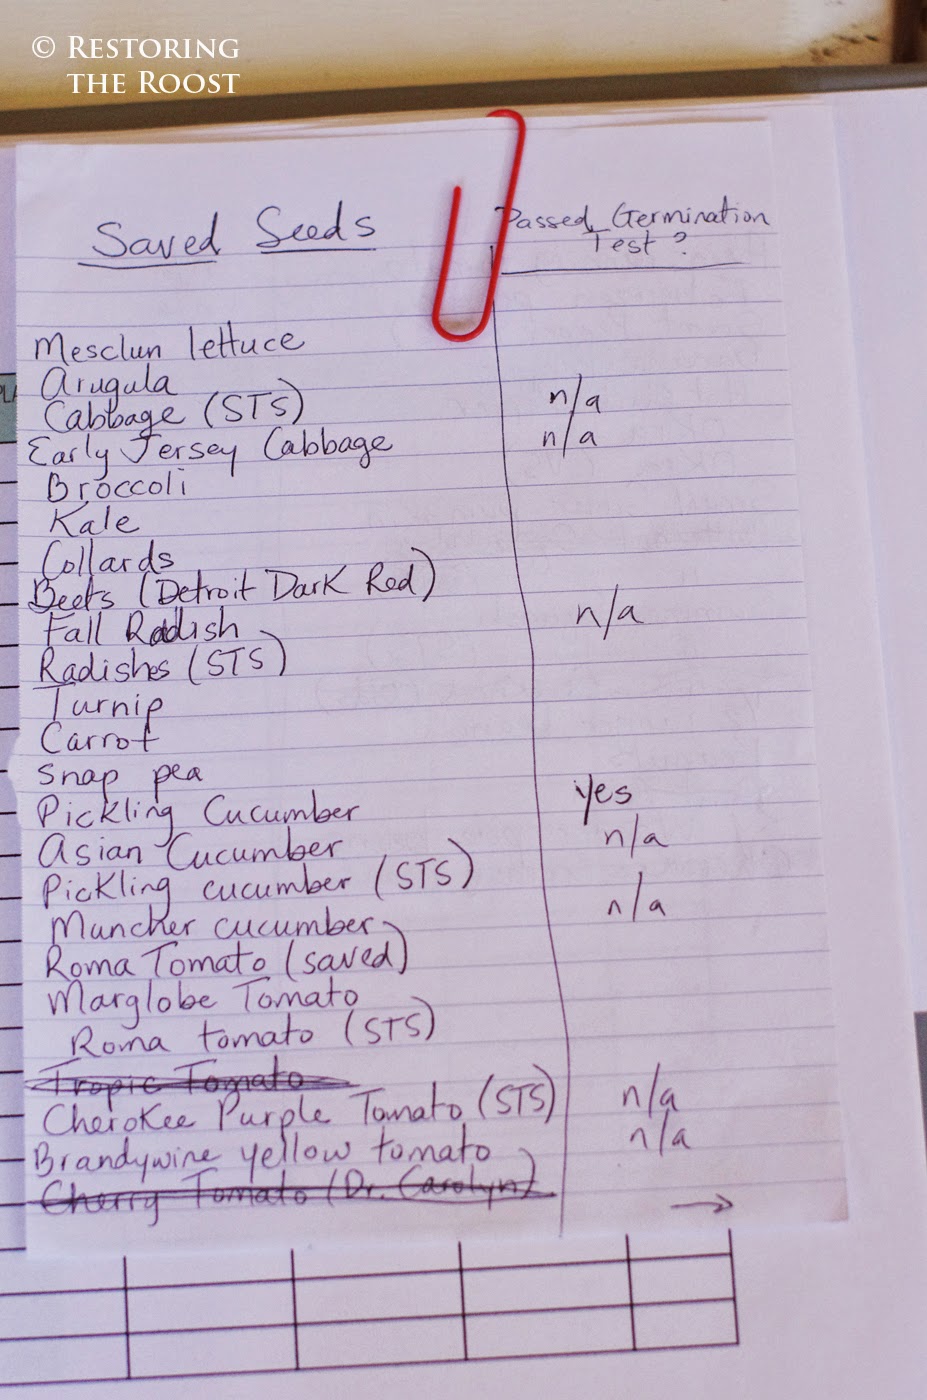 © RESTORING
THE ROOST
Saved Seeds
Passed Germination
Test?
Mesclun lettuce
Arugula
Cabbage (STS) n/a
Early Jersey Cabbage n/a
Broccoli
Kale
Collards
Beets (Detroit Dark Red)
Fall Radish n/a
Radishes (STS)
Turnip
Carrot
Snap pea
Pickling Cucumber yes
Asian Cucumber n/a
Pickling cucumber (STS)
Muncher cucumber n/a
Roma Tomato (saved)
Marglobe Tomato
Roma tomato (STS)
Tropic Tomato
Cherokee Purple Tomato (STS) n/a
Brandywine yellow tomato n/a
Cherry Tomato (Dr. Carolyn)
→